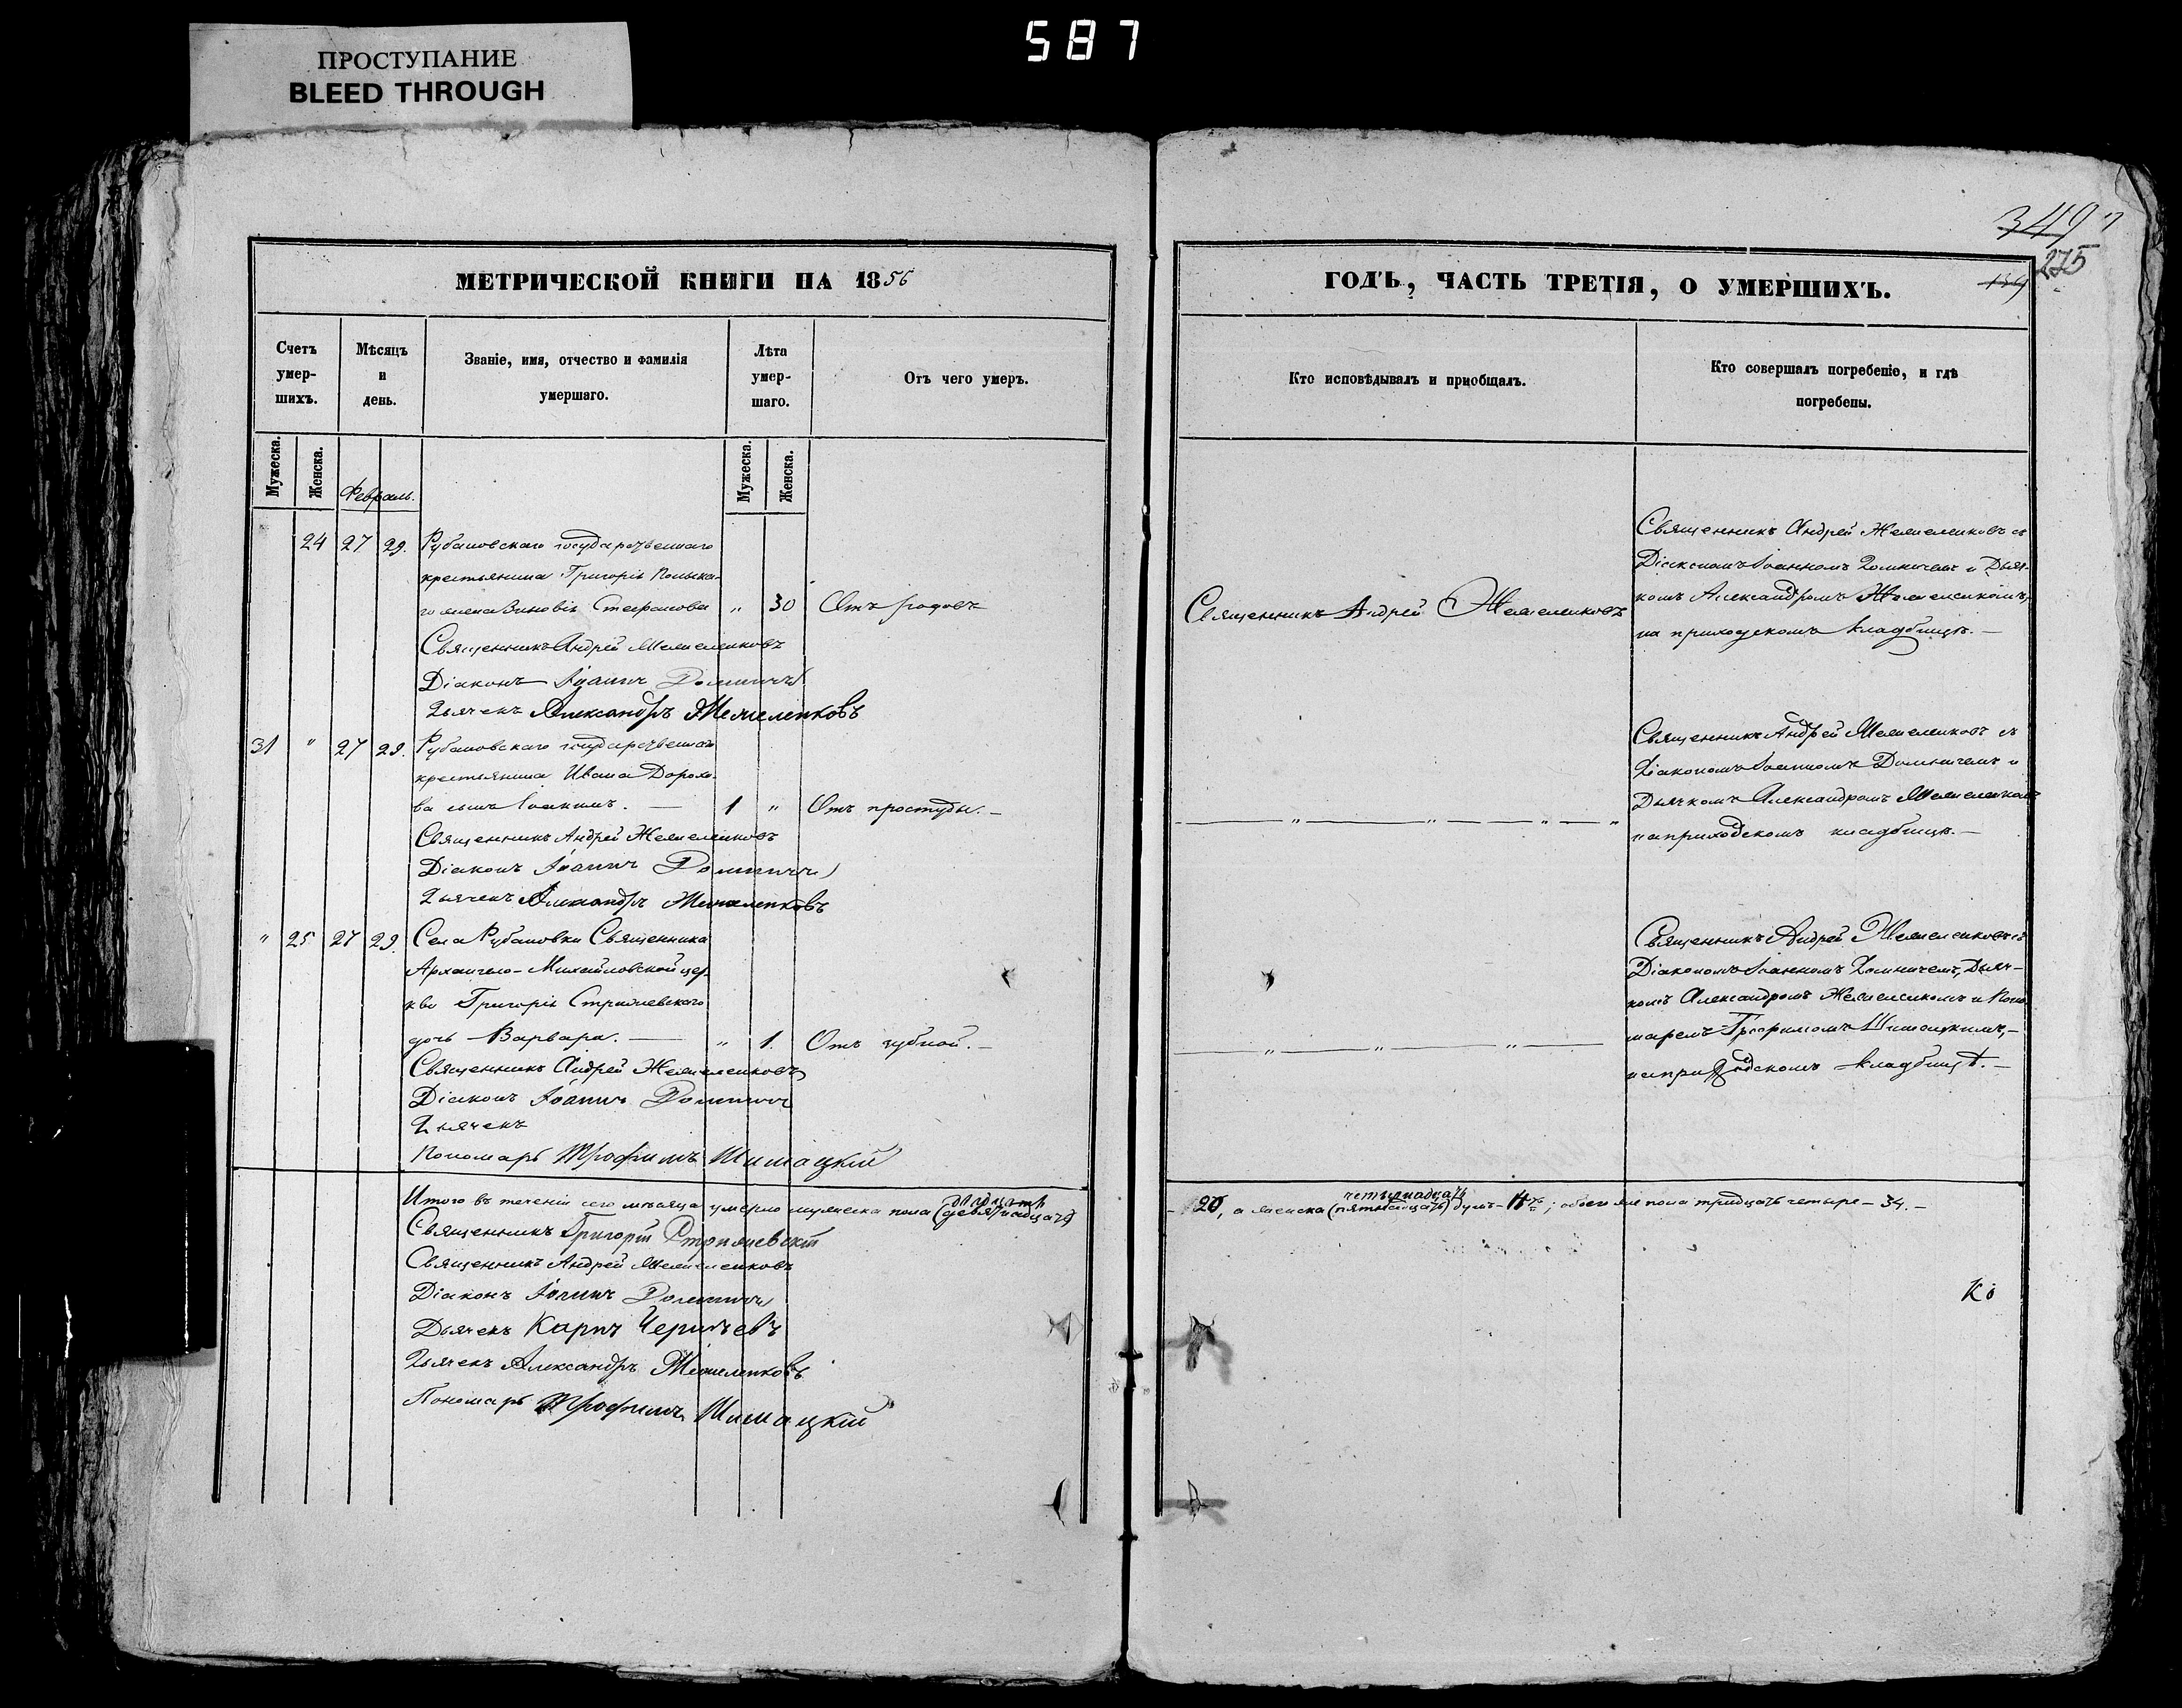 587
ПРОСТУПАНИЕ
BLEED THROUGH
349
275
МЕТРИЧЕСКОЙ КНИГИ НА 1856
ГОДЪ, ЧАСТЬ ТРЕТІЯ, О УМЕРШИХЪ.
Счетъ умер-шихъ.
Мѣсяцъ и день.
Званіе, имя, отчество и фамилія умершаго.
Лѣта умер-шаго.
Отъ чего умеръ.
Кто исповѣдывалъ и пріобщалъ.
Кто совершалъ погребеніе, и гдѣ погребены.
Мужеска.
Женска.
Февраль.
Мужеска.
Женска.
24 27 29. Рубановскаго государственнаго
крестьянина Григорія
жена Зиновія Стефанова „ 30 Отъ родовъ
Священникъ Андрей Жемеленковъ
Діаконъ Іоаннъ Домничъ
Дьячекъ Александръ Жемеленковъ
Священникъ Андрей Жемеленковъ
Священникъ Андрей Жемеленковъ съ
Діакономъ Іоанномъ Домничемъ и Дьяч-
комъ Александромъ Жемеленкомъ,
на приходскомъ кладбищѣ. —
31 „ 27 29. Рубановскаго государственнаго
крестьянина Ивана Дорохо-
ва сынъ Іоакимъ. — 1 „ Отъ простуды. —
Священникъ Андрей Жемеленковъ
Діаконъ Іоаннъ Домничъ
Дьячекъ Александръ Жемеленковъ
— „ — „ — „ — „
Священникъ Андрей Жемеленковъ съ
Діакономъ Іоанномъ Домничемъ и
Дьячкомъ Александромъ Жемеленком
на приходскомъ кладбищѣ. —
„ 25 27 29. Села Рубановки Священника
Архангело-Михайловской цер-
кви Григорія Стрижевскаго
дочь Варвара. — „ 1. Отъ зубной. —
Священникъ Андрей Жемеленковъ
Діаконъ Іоаннъ Домничъ
Дьячекъ
Пономарь Трофимъ Шимацкій
— „ — „ — „ —
Священникъ Андрей Жемеленковъ съ
Діакономъ Іоанномъ Домничемъ, Дьяч-
комъ Александромъ Жемеленкомъ и Поно
маремъ Трофимомъ Шимацкимъ, —
на приходскомъ кладбищѣ. —
Итого въ теченіи сего мѣсяца умерло мужеска пола (девятнадцать) двадцать
— 20, а женска (пятнадцать) четырнадцать душъ — 14; обоего же пола тридцать четыре — 34. —
Священникъ Григорій Стрижевскій
Священникъ Андрей Жемеленковъ
Діаконъ Іоаннъ Домничъ
Дьячекъ Карпъ
Дьячекъ Александръ Жемеленковъ
Пономарь Трофимъ Шимацкій